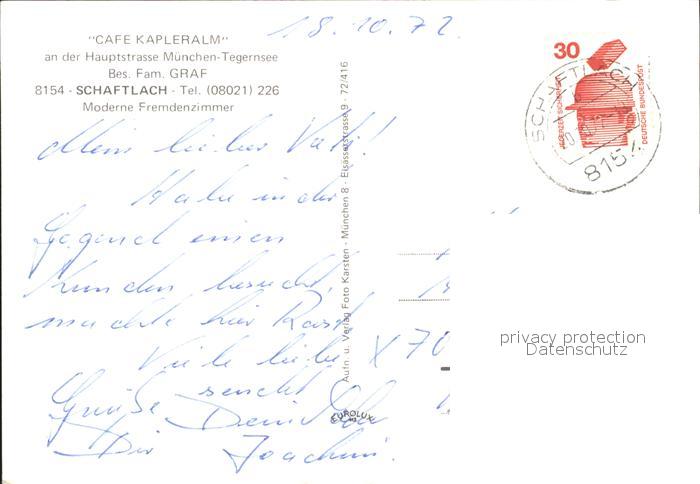 18.10.72.
"CAFE KAPLERALM"
an der Hauptstrasse München-Tegernsee
Bes. Fam. GRAF
8154 - SCHAFTLACH - Tel. (08021) 226
Moderne Fremdenzimmer
30
JEDERZEIT SICHERHEIT
DEUTSCHE BUNDESPOST
SCHAFTLACH
8154
Mein lieber Vati!
Habe in der
Gegend einen
Kunden besucht,
machte hier Rast.
Viele liebe
Grüße sendet
Dir Dein
Joachim.
X 70
Aufn. u. Verlag Foto Karsten - München 8 - Elsässerstrasse 9 - 72/416
EUROLUX
privacy protection
Datenschutz